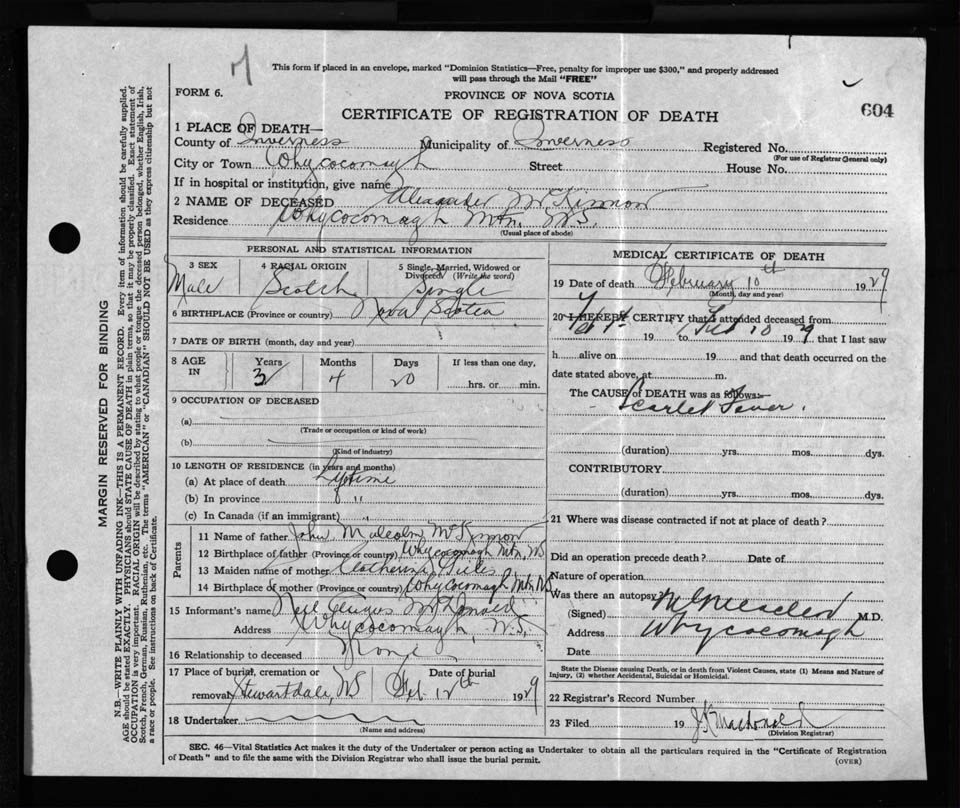 This form if placed in an envelope, marked "Dominion Statistics—Free, penalty for improper use $300," and properly addressed
will pass through the Mail "FREE"
FORM 6.
PROVINCE OF NOVA SCOTIA
604
CERTIFICATE OF REGISTRATION OF DEATH
1 PLACE OF DEATH—
County of Inverness Municipality of Inverness Registered No.
(For use of Registrar General only)
City or Town Whycocomagh Street House No.
If in hospital or institution, give name
2 NAME OF DECEASED Alexander McKinnon
Residence Whycocomagh Mtn. N.S.
(Usual place of abode)
PERSONAL AND STATISTICAL INFORMATION
3 SEX 4 RACIAL ORIGIN 5 Single, Married, Widowed or
Divorced (Write the word)
Male Scotch Single
6 BIRTHPLACE (Province or country) Nova Scotia
7 DATE OF BIRTH (month, day and year)
8 AGE IN Years Months Days If less than one day,
3 4 20 hrs. or min.
9 OCCUPATION OF DECEASED
(a)
(Trade or occupation or kind of work)
(b)
(Kind of industry)
10 LENGTH OF RESIDENCE (in years and months)
(a) At place of death Lifetime
(b) In province "
(c) In Canada (if an immigrant) "
Parents
11 Name of father John Malcolm McKinnon
12 Birthplace of father (Province or country) Whycocomagh Mtn. NS
13 Maiden name of mother Catherine
14 Birthplace of mother (Province or country) Whycocomagh Mtn NS
15 Informant's name Neil Angus McDonald
Address Whycocomagh, N.S.
16 Relationship to deceased None
17 Place of burial, cremation or Date of burial
removal Stewartdale, NS Feb 12th 1929
18 Undertaker
(Name and address)
MEDICAL CERTIFICATE OF DEATH
19 Date of death February 10th 1929
(Month, day and year)
20 I HEREBY CERTIFY that I attended deceased from
Feb 19 to Feb 10 1929, that I last saw
h alive on 19 and that death occurred on the
date stated above, at m.
The CAUSE of DEATH was as follows:—
Scarlet Fever.
(duration) yrs. mos. dys.
CONTRIBUTORY
(duration) yrs. mos. dys.
21 Where was disease contracted if not at place of death?
Did an operation precede death? Date of
Nature of operation
Was there an autopsy
(Signed) M.D.
Address Whycocomagh
Date
State the Disease causing Death, or in death from Violent Causes, state (1) Means and Nature of
Injury, (2) whether Accidental, Suicidal or Homicidal.
22 Registrar's Record Number
23 Filed 19 Macdonald
(Division Registrar)
SEC. 46—Vital Statistics Act makes it the duty of the Undertaker or person acting as Undertaker to obtain all the particulars required in the "Certificate of Registration
of Death" and to file the same with the Division Registrar who shall issue the burial permit.
(OVER)
MARGIN RESERVED FOR BINDING
N.B.—WRITE PLAINLY WITH UNFADING INK—THIS IS A PERMANENT RECORD. Every item of information should be carefully supplied.
AGE should be stated EXACTLY. PHYSICIANS should STATE CAUSE OF DEATH in plain terms, so that it may be properly classified. Exact statement of
OCCUPATION is very important. RACIAL ORIGIN will be described by stating to what people or tongue the deceased person belonged, whether English, Irish,
Scotch, French, German, Russian, Ruthenian, etc. The terms "AMERICAN" or "CANADIAN" SHOULD NOT BE USED as they express citizenship but not
a race or people. See instructions on back of Certificate.